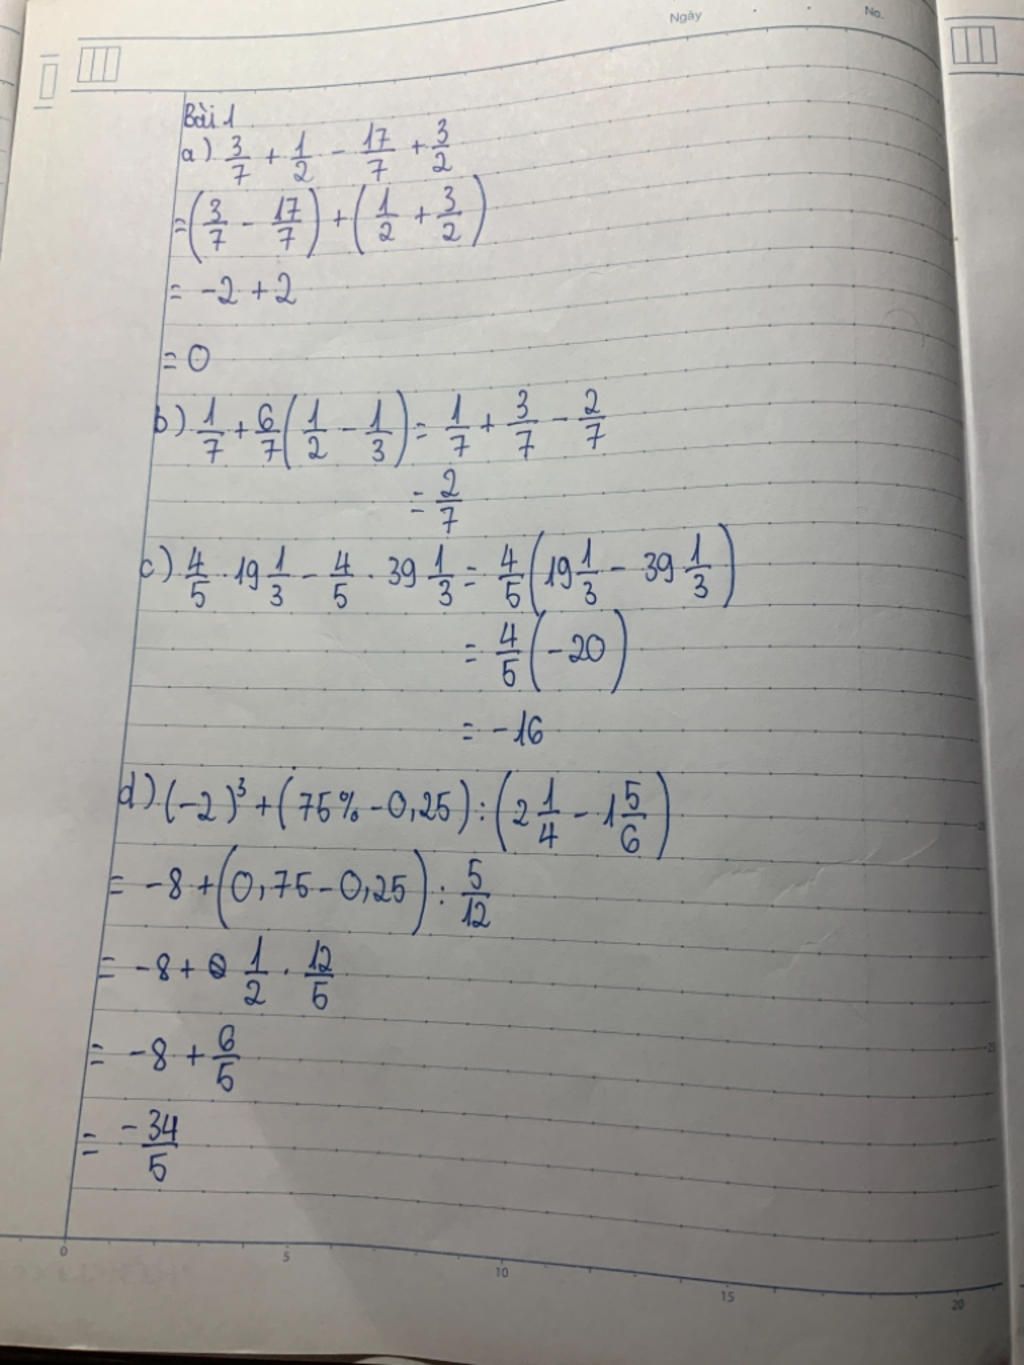 Ngày
No.
Bài 1
a) 3/7 + 1/2 - 17/7 + 3/2
= (3/7 - 17/7) + (1/2 + 3/2)
= -2 + 2
= 0
b) 1/7 + 6/7 (1/2 - 1/3) = 1/7 + 3/7 - 2/7
= 2/7
c) 4/5 . 19 1/3 - 4/5 . 39 1/3 = 4/5 (19 1/3 - 39 1/3)
= 4/5 (-20)
= -16
d) (-2)³ + (75% - 0,25) : (2 1/4 - 1 5/6)
= -8 + (0,75 - 0,25) : 5/12
= -8 + 1/2 . 12/5
= -8 + 6/5
= -34/5
0 5 10 15 20